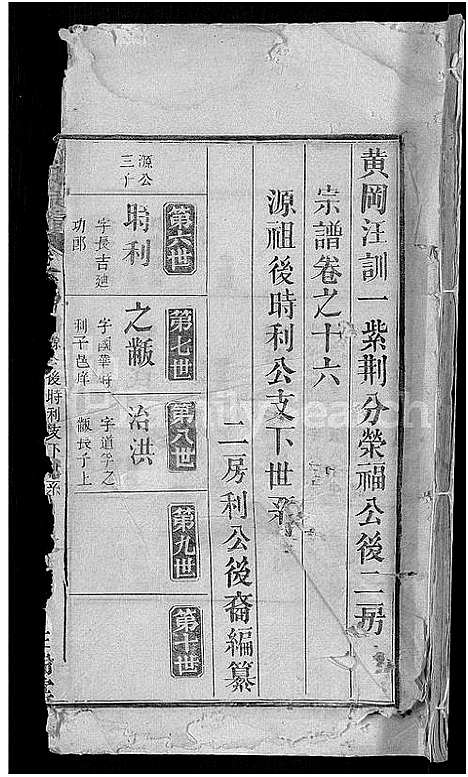 黄岡汪訓一紫荆分榮福公後二房
宗譜卷之十六
源祖後時利公支下世系
二房利公後裔編纂
源公
三子
第六世
時利
字長吉迪
功郎
第七世
之黻
字國華時
利子邑庠
第八世
治洪
字道平之
黻長子上
第九世
第十世
後時利支下世系